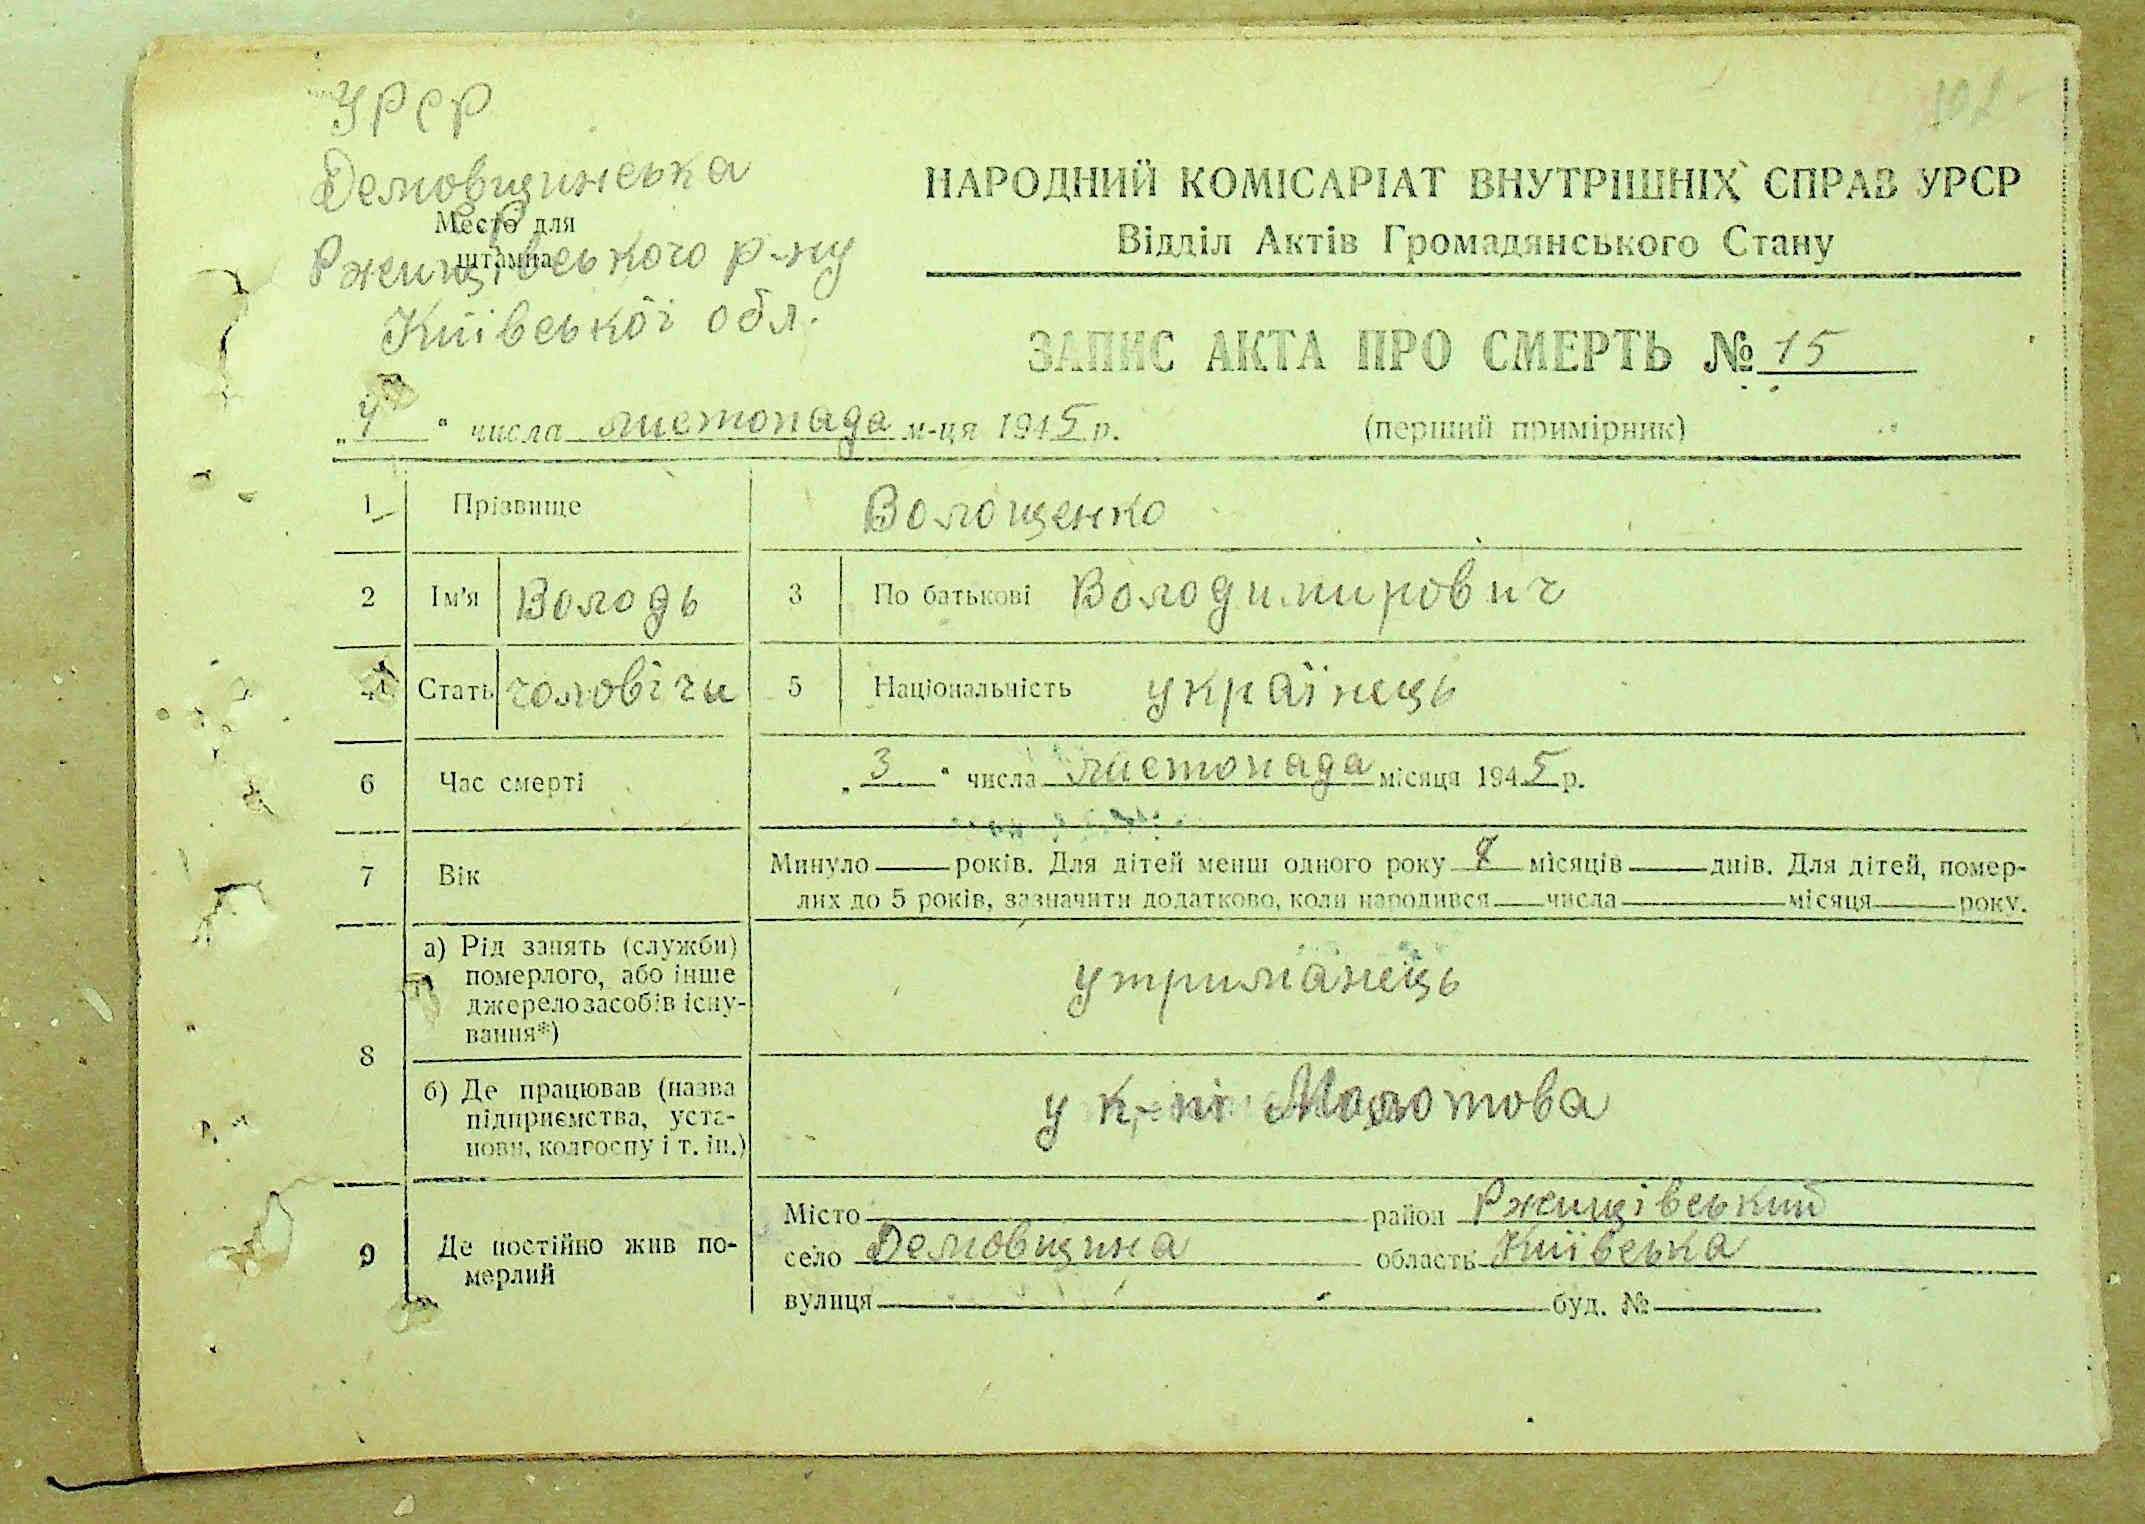 УРСР
Демовщинська
с/р
Место для
штампа
Ржищівського р-ну
Київської обл.
НАРОДНИЙ КОМІСАРІАТ ВНУТРІШНІХ СПРАВ УРСР
Відділ Актів Громадянського Стану
ЗАПИС АКТА ПРО СМЕРТЬ № 15
„4“ числа листопада м-ця 1945 р.
(перший примірник)
1 Прізвище Волощенко
2 Ім'я Володь 3 По батькові Володимирович
4 Стать чоловічи 5 Національність українець
6 Час смерті „3“ числа листопада місяця 1945 р.
7 Вік Минуло — років. Для дітей менш одного року місяців — днів. Для дітей, помер-
лих до 5 років, зазначити додатково, коли народився — числа — місяця — року.
8 а) Рід занять (служби)
померлого, або інше
джерело засобів існу-
вання*)
утриманець
б) Де працював (назва
підприємства, уста-
нови, колгоспу і т. ін.)
у Молотова
9 Де постійно жив по-
мерлий
Місто — район Ржищівський
село Демовщина область Київська
вулиця — буд. № —